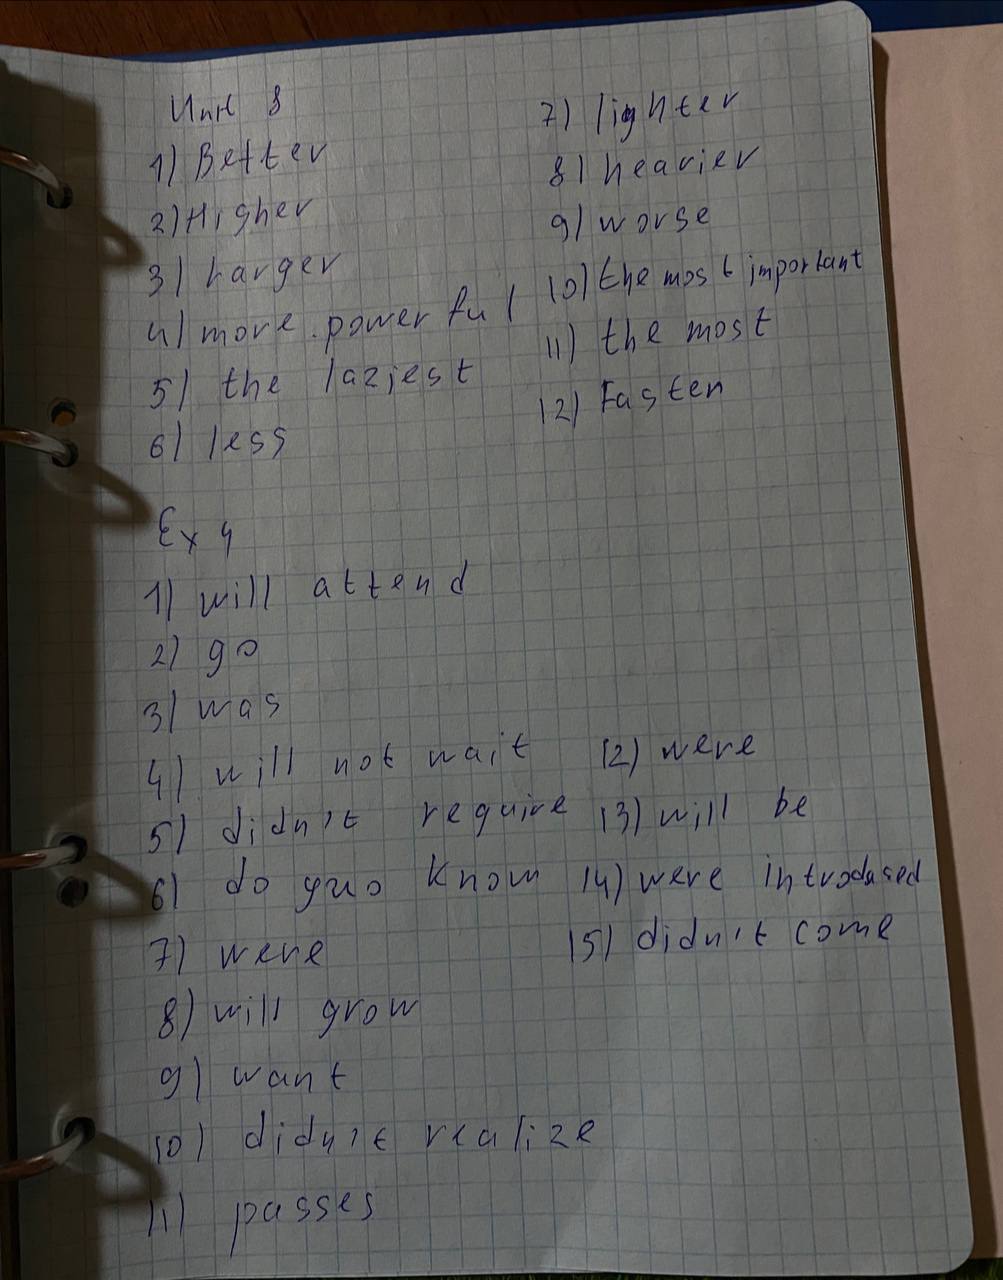 Unit 8
1) Better
2) Higher
3) Larger
4) more powerful
5) the laziest
6) less
7) lighter
8) heavier
9) worse
10) the most important
11) the most
12) Fasten
Ex 4
1) will attend
2) go
3) was
4) will not wait
5) didn't require
6) do guo know
7) were
8) will grow
9) want
10) didn't realize
11) passes
12) were
13) will be
14) were introdused
15) didn't come